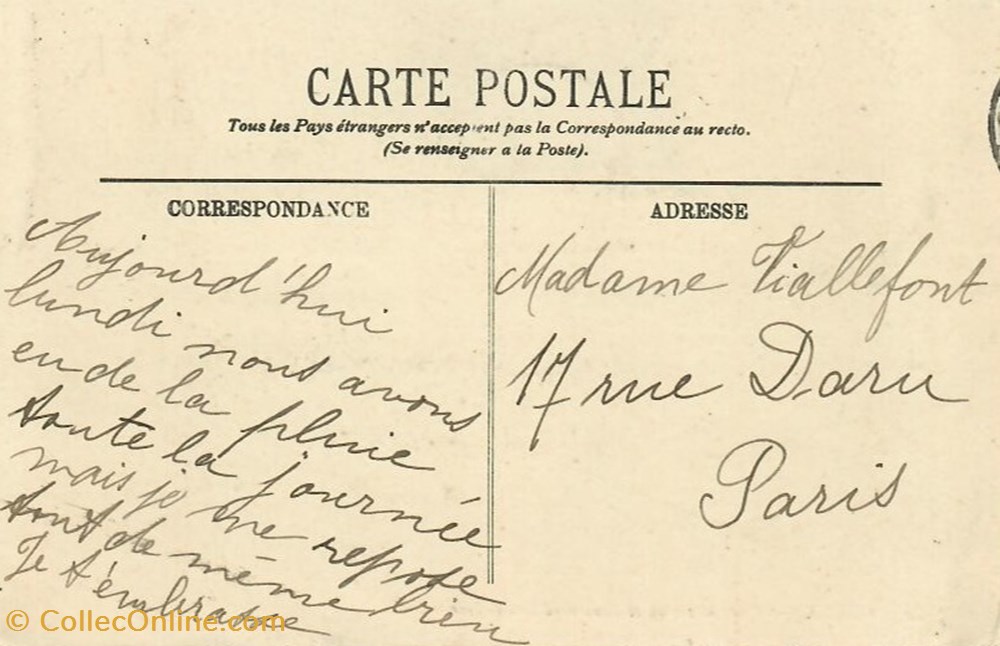 CARTE POSTALE
Tous les Pays étrangers n'acceptent pas la Correspondance au recto.
(Se renseigner a la Poste).
CORRESPONDANCE
Aujourd'hui
lundi nous avons
eu de la pluie
toute la journée
mais je me repose
tout de même bien
Je t'embrasse
ADRESSE
Madame Viallefont
17 rue Daru
Paris
© CollecOnline.com